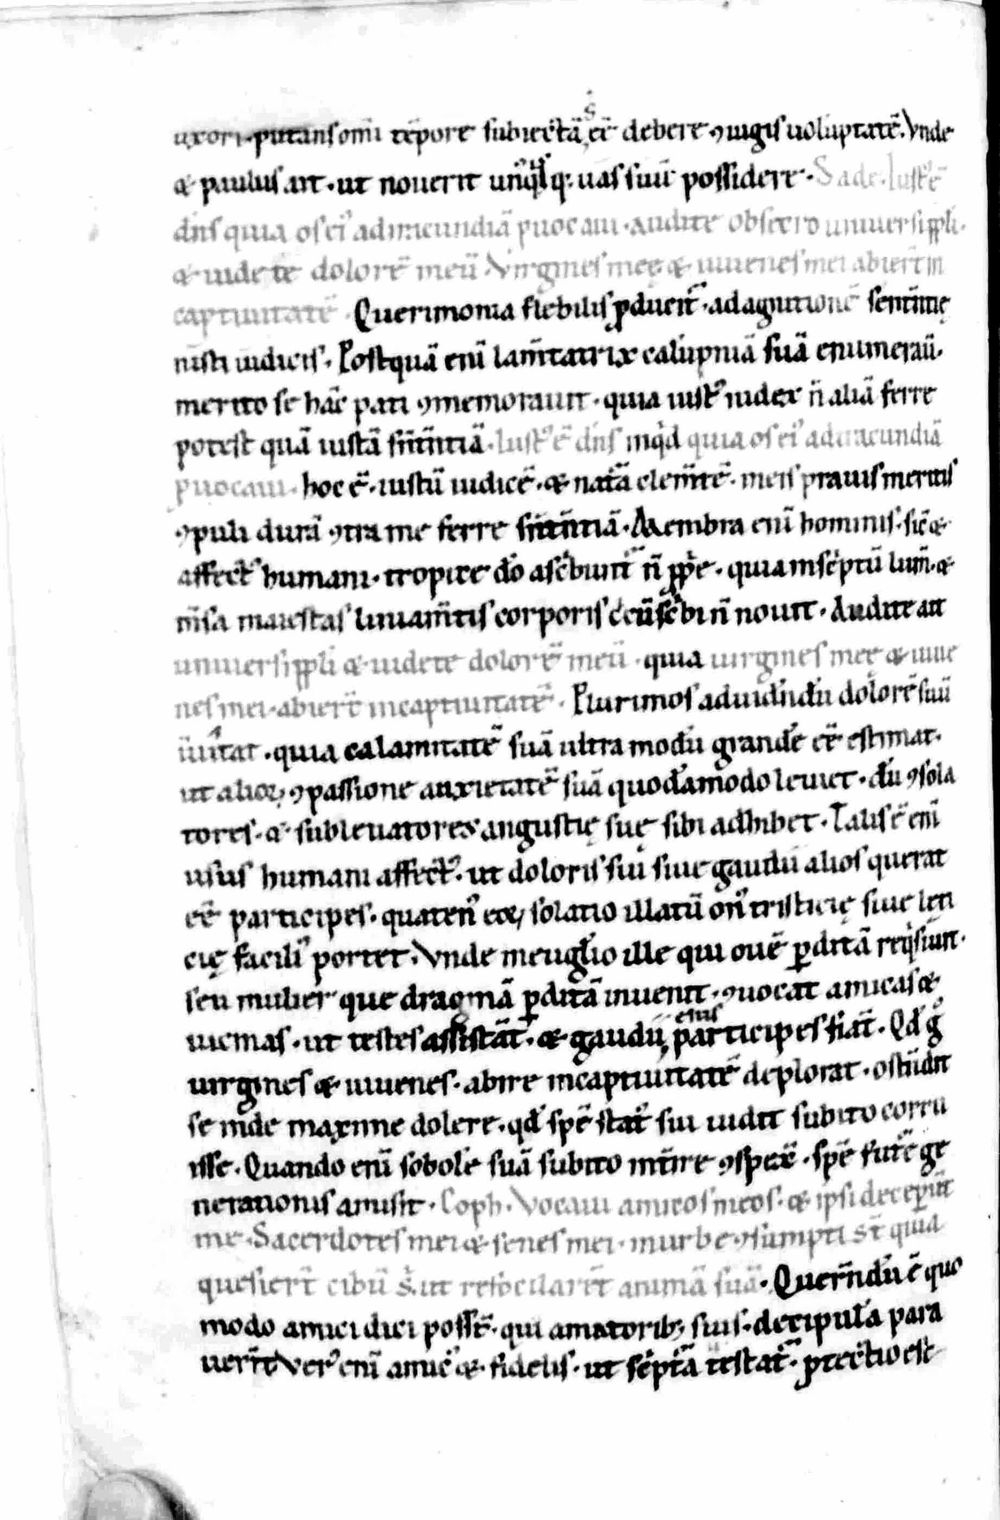 uxori· putans om̄i tēpore subiectā ēē debere ꝯiugis uoluptatē. Vnde
& paulus ait· ut nouerit unꝰqͥsq; uas suū possidere· Sade. Iustꝰ ē
dn̄s quia os eiꝰ ad iracundiā ꝓuocaui· Audite obsecro uniuersi ppl̄i·
& uidete dolorē meū Virgines meę & iuuenes mei abierr̄t in
captiuitatē· Querimonia flebilis ꝓducit̄· ad agnitionē sentn̄tię
iusti iudicis· Postquā eni̅ lam̄tatrix calūpniā suā enumerau̅·
merito se hāc pati ꝯmemorauit· quia iustꝰ iudex n̄ aliā ferre
potest quā iustā sn̄tn̄tiā· Iustꝰ ē dn̄s inqͥd quia os eiꝰ ad iracundiā
ꝓuocaui· hoc ē· iustū iudicē· & natā clem̄tē· meis prauis meritis
ꝯpuli durā ꝯtra me ferre sn̄tn̄tiā· Membra eni̅ hominis· sic̄ &
affectꝰ humani· tropice dō ascͥbunt̄ n̄ ꝓpͥe· quia inscͥptū lum̄· &
m̄sa maiestas liniam̄tis corporis cͥcūscͥbi n̄ nouit· Audite ait
uniuersi ppl̄i & uidete dolorē meū· quia uirgines meę & iuue
nes mei· abierr̄t in captiuitatē· Plurimos ad uidn̄dū dolorē suū
inuitat· quia calamitatē suā ultra modū grandē ēē estimat·
ut alioꝝ ꝯpassione anxietatē suā quodāmodo leuiet· dū ꝯsola
tores· & subleuatores angustię suę sibi adhibet· Talis ē eni̅
usus humani affectꝰ· ut doloris sui siue gaudii alios querat
ēē participes· quatenꝰ eoꝝ solatio illatū onꝰ tristicię siue leti
cię faciliꝰ portet· Vnde in eugl̄io ille qui ouē ꝑditā reqͥsiuit·
seu mulier que dragmā ꝑditā inuenit· ꝯuocat amicas &
uicinas· ut testes assistāt· & gaudii eius participes fiāt· Qd̄ gͦ
uirgines & iuuenes· abire in captiuitatē deplorat· ostn̄dit
se inde maxime dolere· qd̄ spē statꝰ sui uidit subito corru
isse· Quando eni̅ sobolē suā subito int̄ire ꝯspex̄· spē futͤe ge
nerationis amisit· Coph. Vocaui amicos meos· & ipsi deceperūt
me· Sacerdotes mei & senes mei· in urbe ꝯsumpti st̄ quia
quesierr̄t cibū s̄· ut refocilarēt animā suā· Quern̄dū ē quo
modo amici dici possēt· qui amatorib; suis· decipulā para
uerr̄t Verꝰ eni̅ amicꝰ &· fidelis· ut scͥptā testat̄· ꝓtectio est